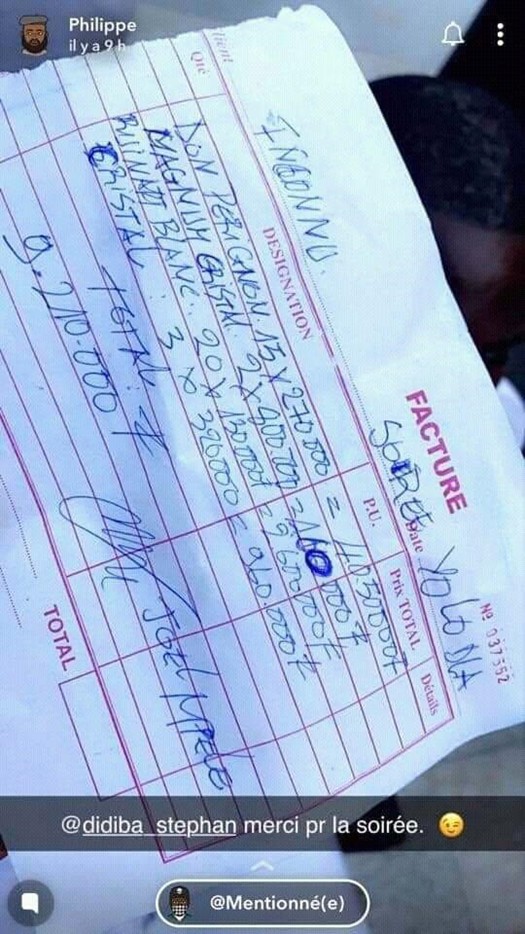 Philippe
il y a 9 h
FACTURE
N° 037552
SOIRE YOLO DLA
Date
INCONNU.
Qté
DESIGNATION
P.U.
Prix TOTAL
Détails
DON PERIGNON. 15 X 270.000 = 4050000F
MAGNUM CRISTAL 2X 800.000 =
RUINART BLANC : 20 X 130000 = 2.600.000F
CRISTAL : 3 x 320000 = 960.000F
TOTAL : F
9.210.000
JOEL
TOTAL
@didiba_stephan merci pr la soirée. 😉
@Mentionné(e)